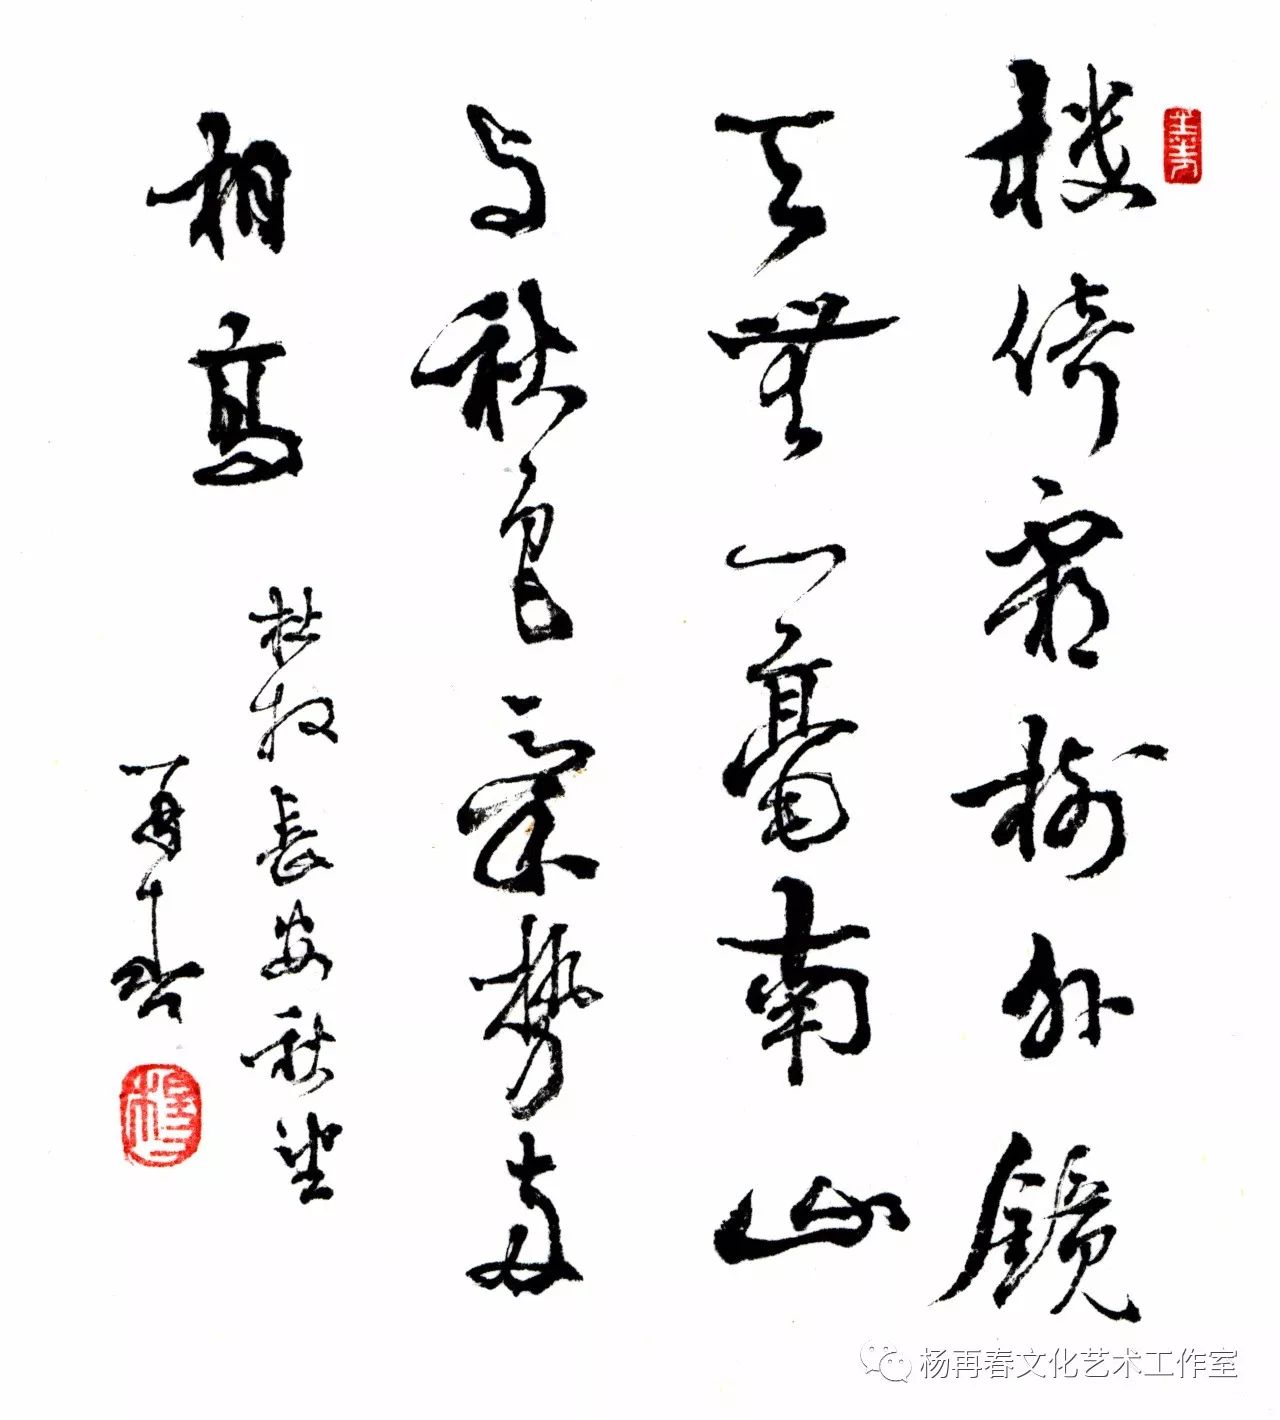 楼倚霜树外镜
天無一毫南山
与秋色气势两
相高
杜牧長安秋望
再春
杨再春文化艺术工作室